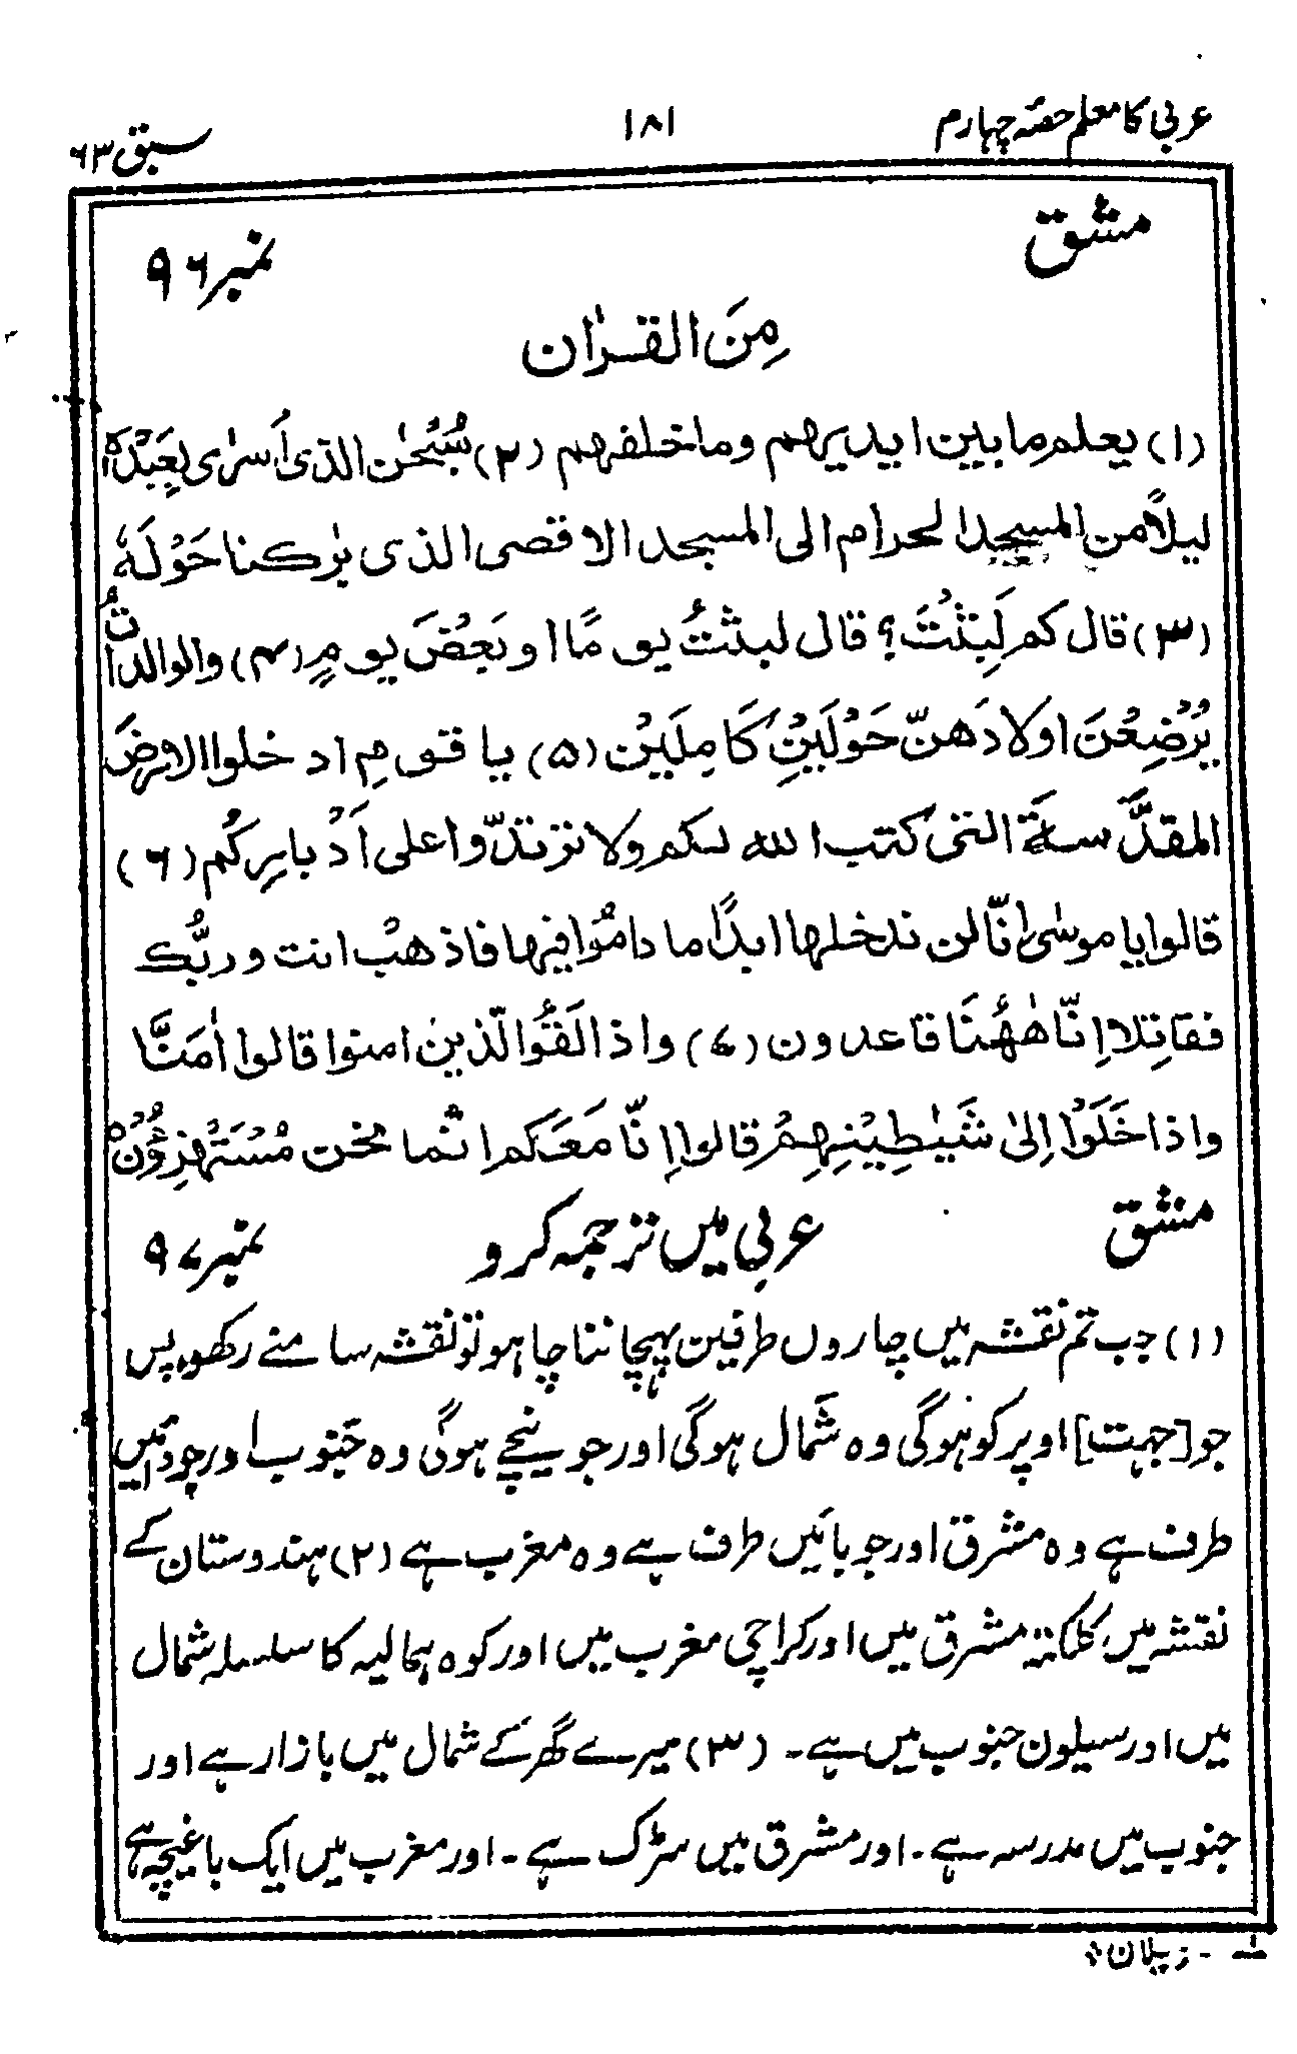 عربی کا معلم حصّہ چہارم ۱۸۱ سبق ۶۳
مشق نمبر ۹۶
مِنَ القراٰن
(۱) یعلم ما بین ایدیهم وما خلفهم (۲) سُبْحٰن الذی اَسرٰی بِعَبْدِہٖ
لیلاً من المسجد الحرام الی المسجد الاقصی الذی بٰرکنا حَوْلَهٗ
(۳) قال کم لَبِثْتَ؟ قال لبثتُ یومًا او بَعْضَ یومٍ (۴) والوالداتُ
یُرْضِعْنَ اولادَهنّ حَوْلَیْنِ کَامِلَیْن (۵) یا قوم ادخلوا الارضَ
المقدَّسةَ التی کتب الله لکم ولا ترتدّوا علی اَدْبارِکُم (۶)
قالوا یا موسٰی اِنّا لن ندخلها ابدًا ما دامُوا فیها فاذهبْ انت وربُّک
فقاتِلا اِنّا هٰهُنَا قاعدون (۷) واذا لَقُوا الّذین اٰمنوا قالوا اٰمَنَّا
واذا خَلَوْا اِلیٰ شَیٰطِیْنِهِمْ قالوا اِنّا مَعَکم انّما نحن مُسْتَهْزِؤُنْ
مشق عربی میں ترجمہ کرو نمبر ۹۷
(۱) جب تم نقشہ میں چاروں طرفین پہچاننا چاہو تو نقشہ سامنے رکھو، پس
جو [جہت] اوپر کو ہوگی وہ شَمال ہوگی اور جو نیچے ہوگی وہ جَنوب اور جو دائیں
طرف ہے وہ مشرق اور جو بائیں طرف ہے وہ مغرب ہے (۲) ہندوستان کے
نقشہ میں کلکتہ مشرق میں اور کراچی مغرب میں اور کوہ ہمالیہ کا سلسلہ شمال
میں اور سیلون جنوب میں ہے۔ (۳) میرے گھر کے شمال میں بازار ہے اور
جنوب میں مدرسہ ہے۔ اور مشرق میں سڑک ہے۔ اور مغرب میں ایک باغیچہ ہے